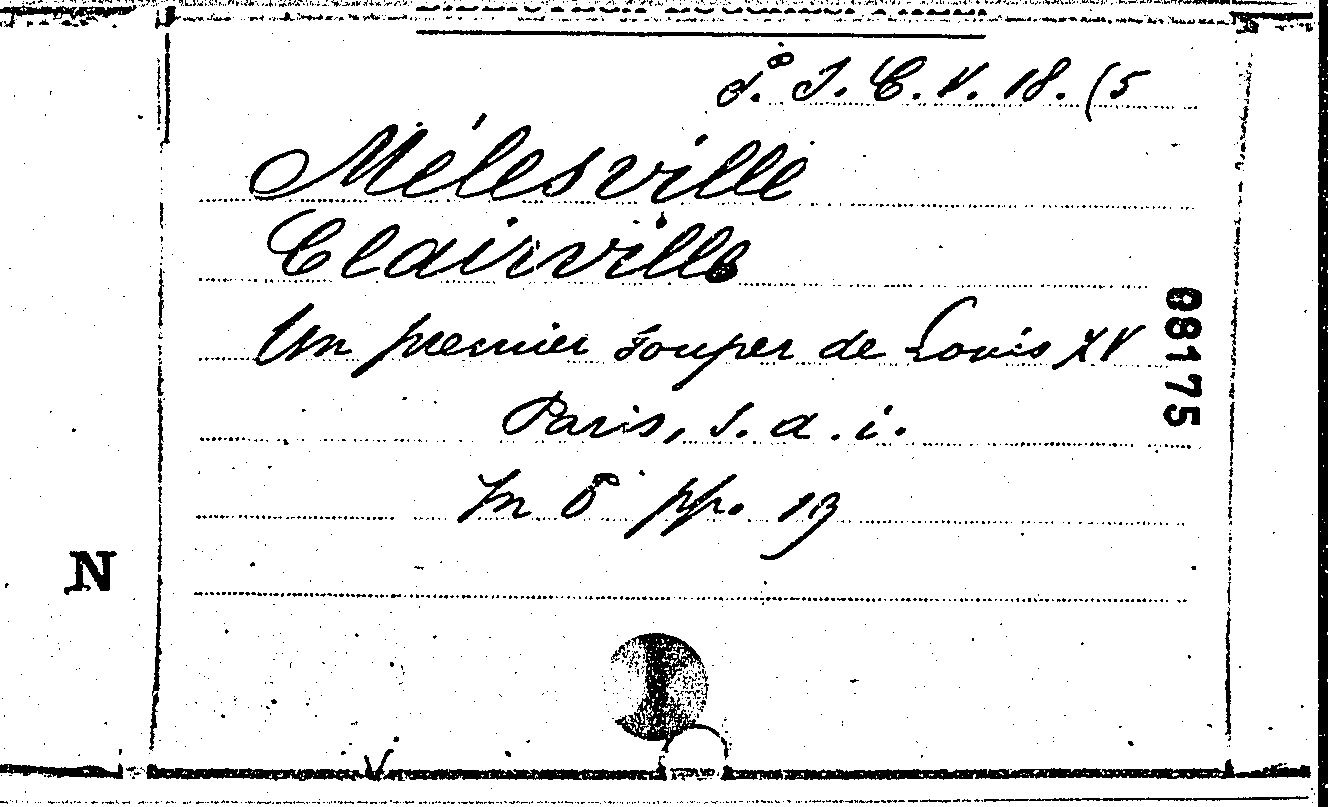 S. I. C. V. 18. (5
Mélesville
Clairville
Un premier souper de Louis XV
Paris, s. a. i.
In 8° pp. 13
08175
N